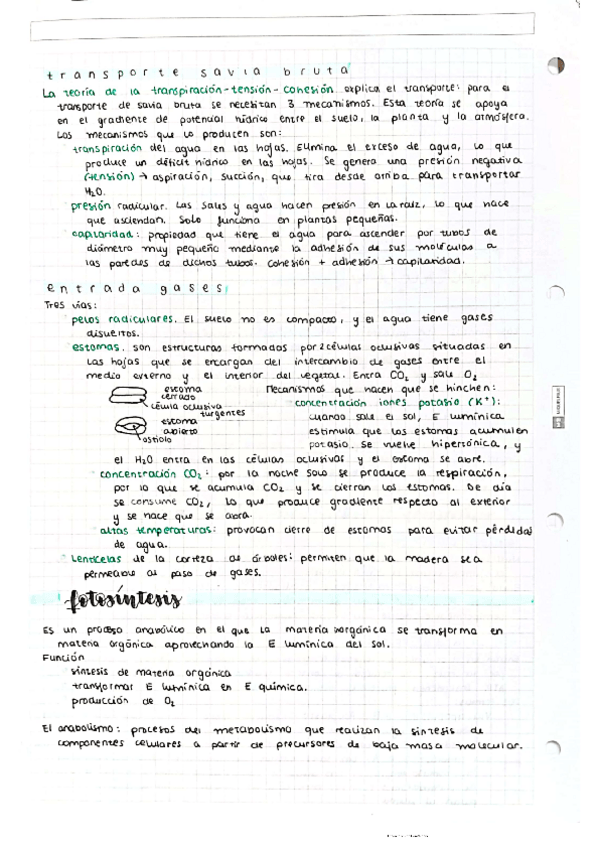 transporte savia bruta
La teoría de la transpiración-tensión-cohesión explica el transporte: para el
transporte de savia bruta se necesitan 3 mecanismos. Esta teoría se apoya
en el gradiente de potencial hídrico entre el suelo, la planta y la atmósfera.
Los mecanismos que lo producen son:
transpiración del agua en las hojas. Elimina el exceso de agua, lo que
produce un déficit hídrico en las hojas. Se genera una presión negativa
(tensión) → aspiración, succión, que tira desde arriba para transportar
H₂O.
presión radicular. Las sales y agua hacen presión en la raíz, lo que hace
que asciendan. Solo funciona en plantas pequeñas.
capilaridad: propiedad que tiene el agua para ascender por tubos de
diámetro muy pequeño mediante la adhesión de sus moléculas a
las paredes de dichos tubos. Cohesión + adhesión → capilaridad.
entrada gases
Tres vías:
pelos radiculares. El suelo no es compacto, y el agua tiene gases
disueltos.
estomas. son estructuras formadas por 2 células oclusivas situadas en
las hojas que se encargan del intercambio de gases entre el
medio externo y el interior del vegetal. Entra CO₂ y sale O₂
estoma cerrado
célula oclusiva
turgentes
estoma abierto
ostiolo
Mecanismos que hacen que se hinchen:
concentración iones potasio (K⁺):
cuando sale el sol, E lumínica
estimula que los estomas acumulen
potasio. Se vuelve hipertónica, y
el H₂O entra en las células oclusivas y el estoma se abre.
concentración CO₂: por la noche solo se produce la respiración,
por lo que se acumula CO₂ y se cierran los estomas. De día
se consume CO₂, lo que produce gradiente respecto al exterior
y se hace que se abra.
altas temperaturas: provocan cierre de estomas para evitar pérdidas
de agua.
Lenticelas de la corteza de árboles: permiten que la madera sea
permeable al paso de gases.
fotosíntesis
Es un proceso anabólico en el que la materia inorgánica se transforma en
materia orgánica aprovechando la E lumínica del sol.
Función
síntesis de materia orgánica
transformar E lumínica en E química.
producción de O₂
El anabolismo: procesos del metabolismo que realizan la síntesis de
componentes celulares a partir de precursores de baja masa molecular.